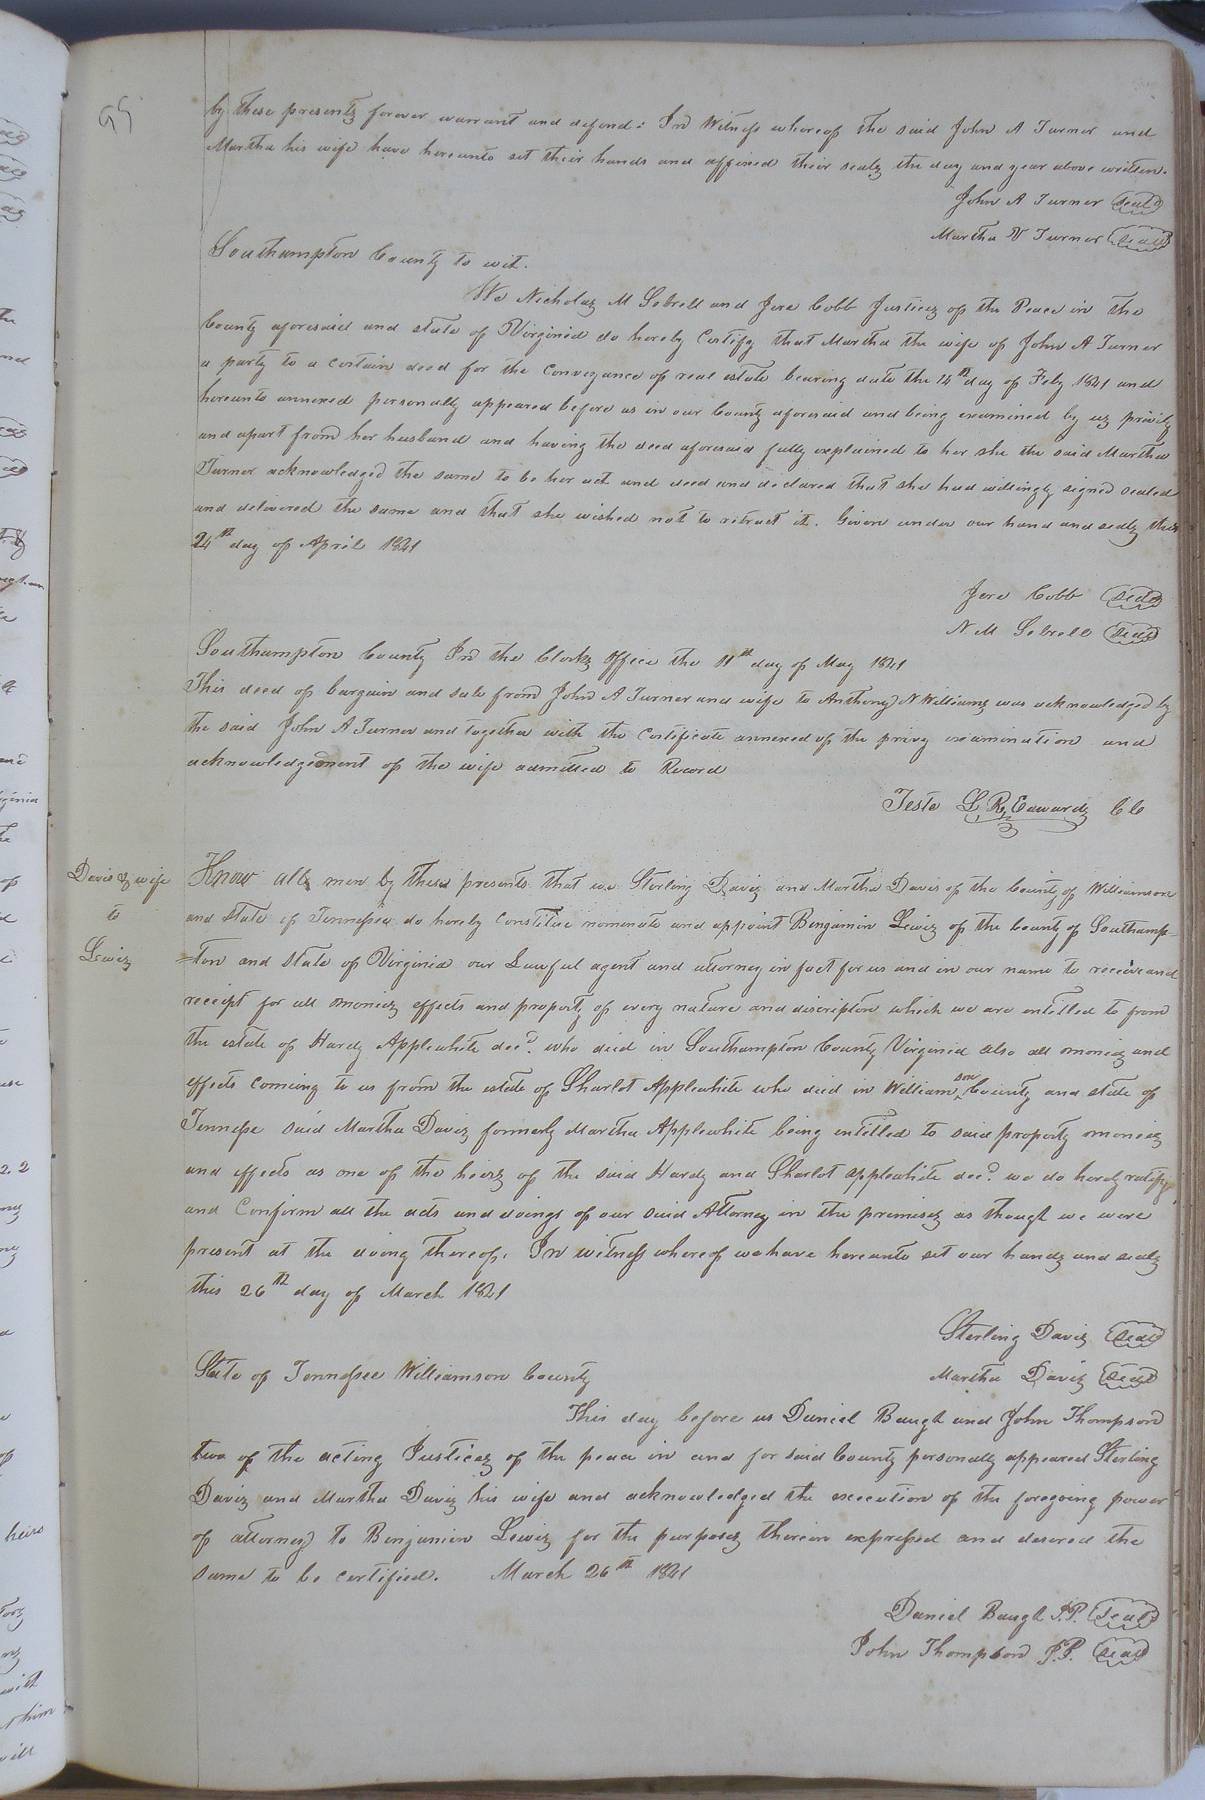 95
by these presents forever warrant and defend: In Witness whereof the said John A Turner and
Martha his wife have hereunto set their hands and affixed their seals the day and year above written.
John A Turner seal
Martha V Turner seal
Southampton County to wit.
We Nicholas M Sebrell and Jere Cobb Justices of the Peace in the
County aforesaid and state of Virginia do hereby Certify that Martha the wife of John A Turner
a party to a certain deed for the Conveyance of real estate bearing date the 14th day of Feby 1821 and
hereunto annexed personally appeared before us in our County aforesaid and being examined by us privily
and apart from her husband and having the deed aforesaid fully explained to her she the said Martha
Turner acknowledged the same to be her act and deed and declared that she had willingly signed sealed
and delivered the same and that she wished not to retract it. Given under our hand and seals this
24th day of April 1821
Jere Cobb seal
N M Sebrell seal
Southampton County In the Clerks Office the 11th day of May 1821
This deed of bargain and sale from John A Turner and wife to Anthony N Williams was acknowledged by
the said John A Turner and together with the Certificate annexed of the privy examination and
acknowledgement of the wife admitted to Record
Teste L. R. Edwards CC
Davis & wife
to
Lewis
Know all men by these presents that we Sterling Davis and Martha Davis of the County of Williamson
and State of Tennessee do hereby Constitute nominate and appoint Benjamin Lewis of the County of Southamp-
=ton and State of Virginia our Lawful agent and attorney in fact for us and in our name to receive and
receipt for all monies effects and property of every nature and discription which we are intitled to from
the estate of Hardy Applewhite decd. who died in Southampton County Virginia also all monies and
effects coming to us from the estate of Sharlot Applewhite who died in Williamson County and state of
Tennesse said Martha Davis formerly Martha Applewhite being intitled to said property monies
and effects as one of the heirs of the said Hardy and Sharlot applewhite decd. we do hereby ratify
and Confirm all the acts and doings of our said Attorney in the premises as though we were
present at the doing thereof. In witness whereof we have hereunto set our hands and seals
this 26th day of March 1821
Sterling Davis seal
Martha Davis seal
State of Tennessee Williamson County
This day before us Daniel Baugh and John Thompson
two of the acting Justices of the peace in and for said County personally appeared Sterling
Davis and Martha Davis his wife and acknowledged the execution of the foregoing power
of attorney to Benjamin Lewis for the purposes therein expressed and desired the
same to be certified. March 26th 1821
Daniel Baugh J.P. seal
John Thompson J.P. seal